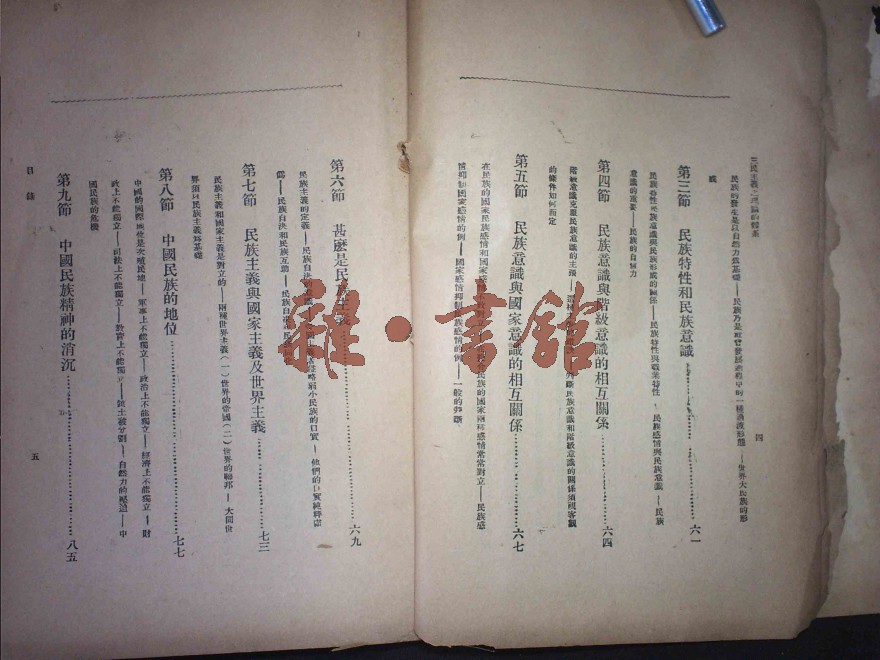 三民主義之理論的體系
四
民族的發生是以自然力為基礎——民族乃是社會發展過程中的一種過渡形態——世界大民族的形
成
第三節 民族特性和民族意識……六一
民族特性民族意識與民族形成的關係——民族特性與職業特性 民族感情與民族意識——民族
意識的重要——民族的自信力
第四節 民族意識與階級意識的相互關係……六四
階級意識克服民族意識的主張 判斷民族意識和階級意識的關係須視客觀
的條件如何而定
第五節 民族意識與國家意識的相互關係……六七
在民族的國家民族感情和國家 民族的國家兩種感情常常對立——民族感
情抑制國家感情的例——國家感情抑制民族感情的例——一般的判斷
第六節 甚麼是民族主義……六九
民族主義的定義——民族自決 侵略弱小民族的口實——他們的口實純粹虛
偽——民族自決和民族互助——民族自決
第七節 民族主義與國家主義及世界主義……七三
民族主義和國家主義是對立的——兩種世界主義(一)世界的帝國(二)世界的聯邦——大同世
界須以民族主義為基礎
第八節 中國民族的地位……七七
中國的國際地位是次殖民地——軍事上不能獨立——政治上不能獨立——經濟上不能獨立——財
政上不能獨立——司法上不能獨立——教育上不能獨立——領土被分割——自然力的壓迫——中
國民族的危機
第九節 中國民族精神的消沉……八五
目錄
五
雅·書館